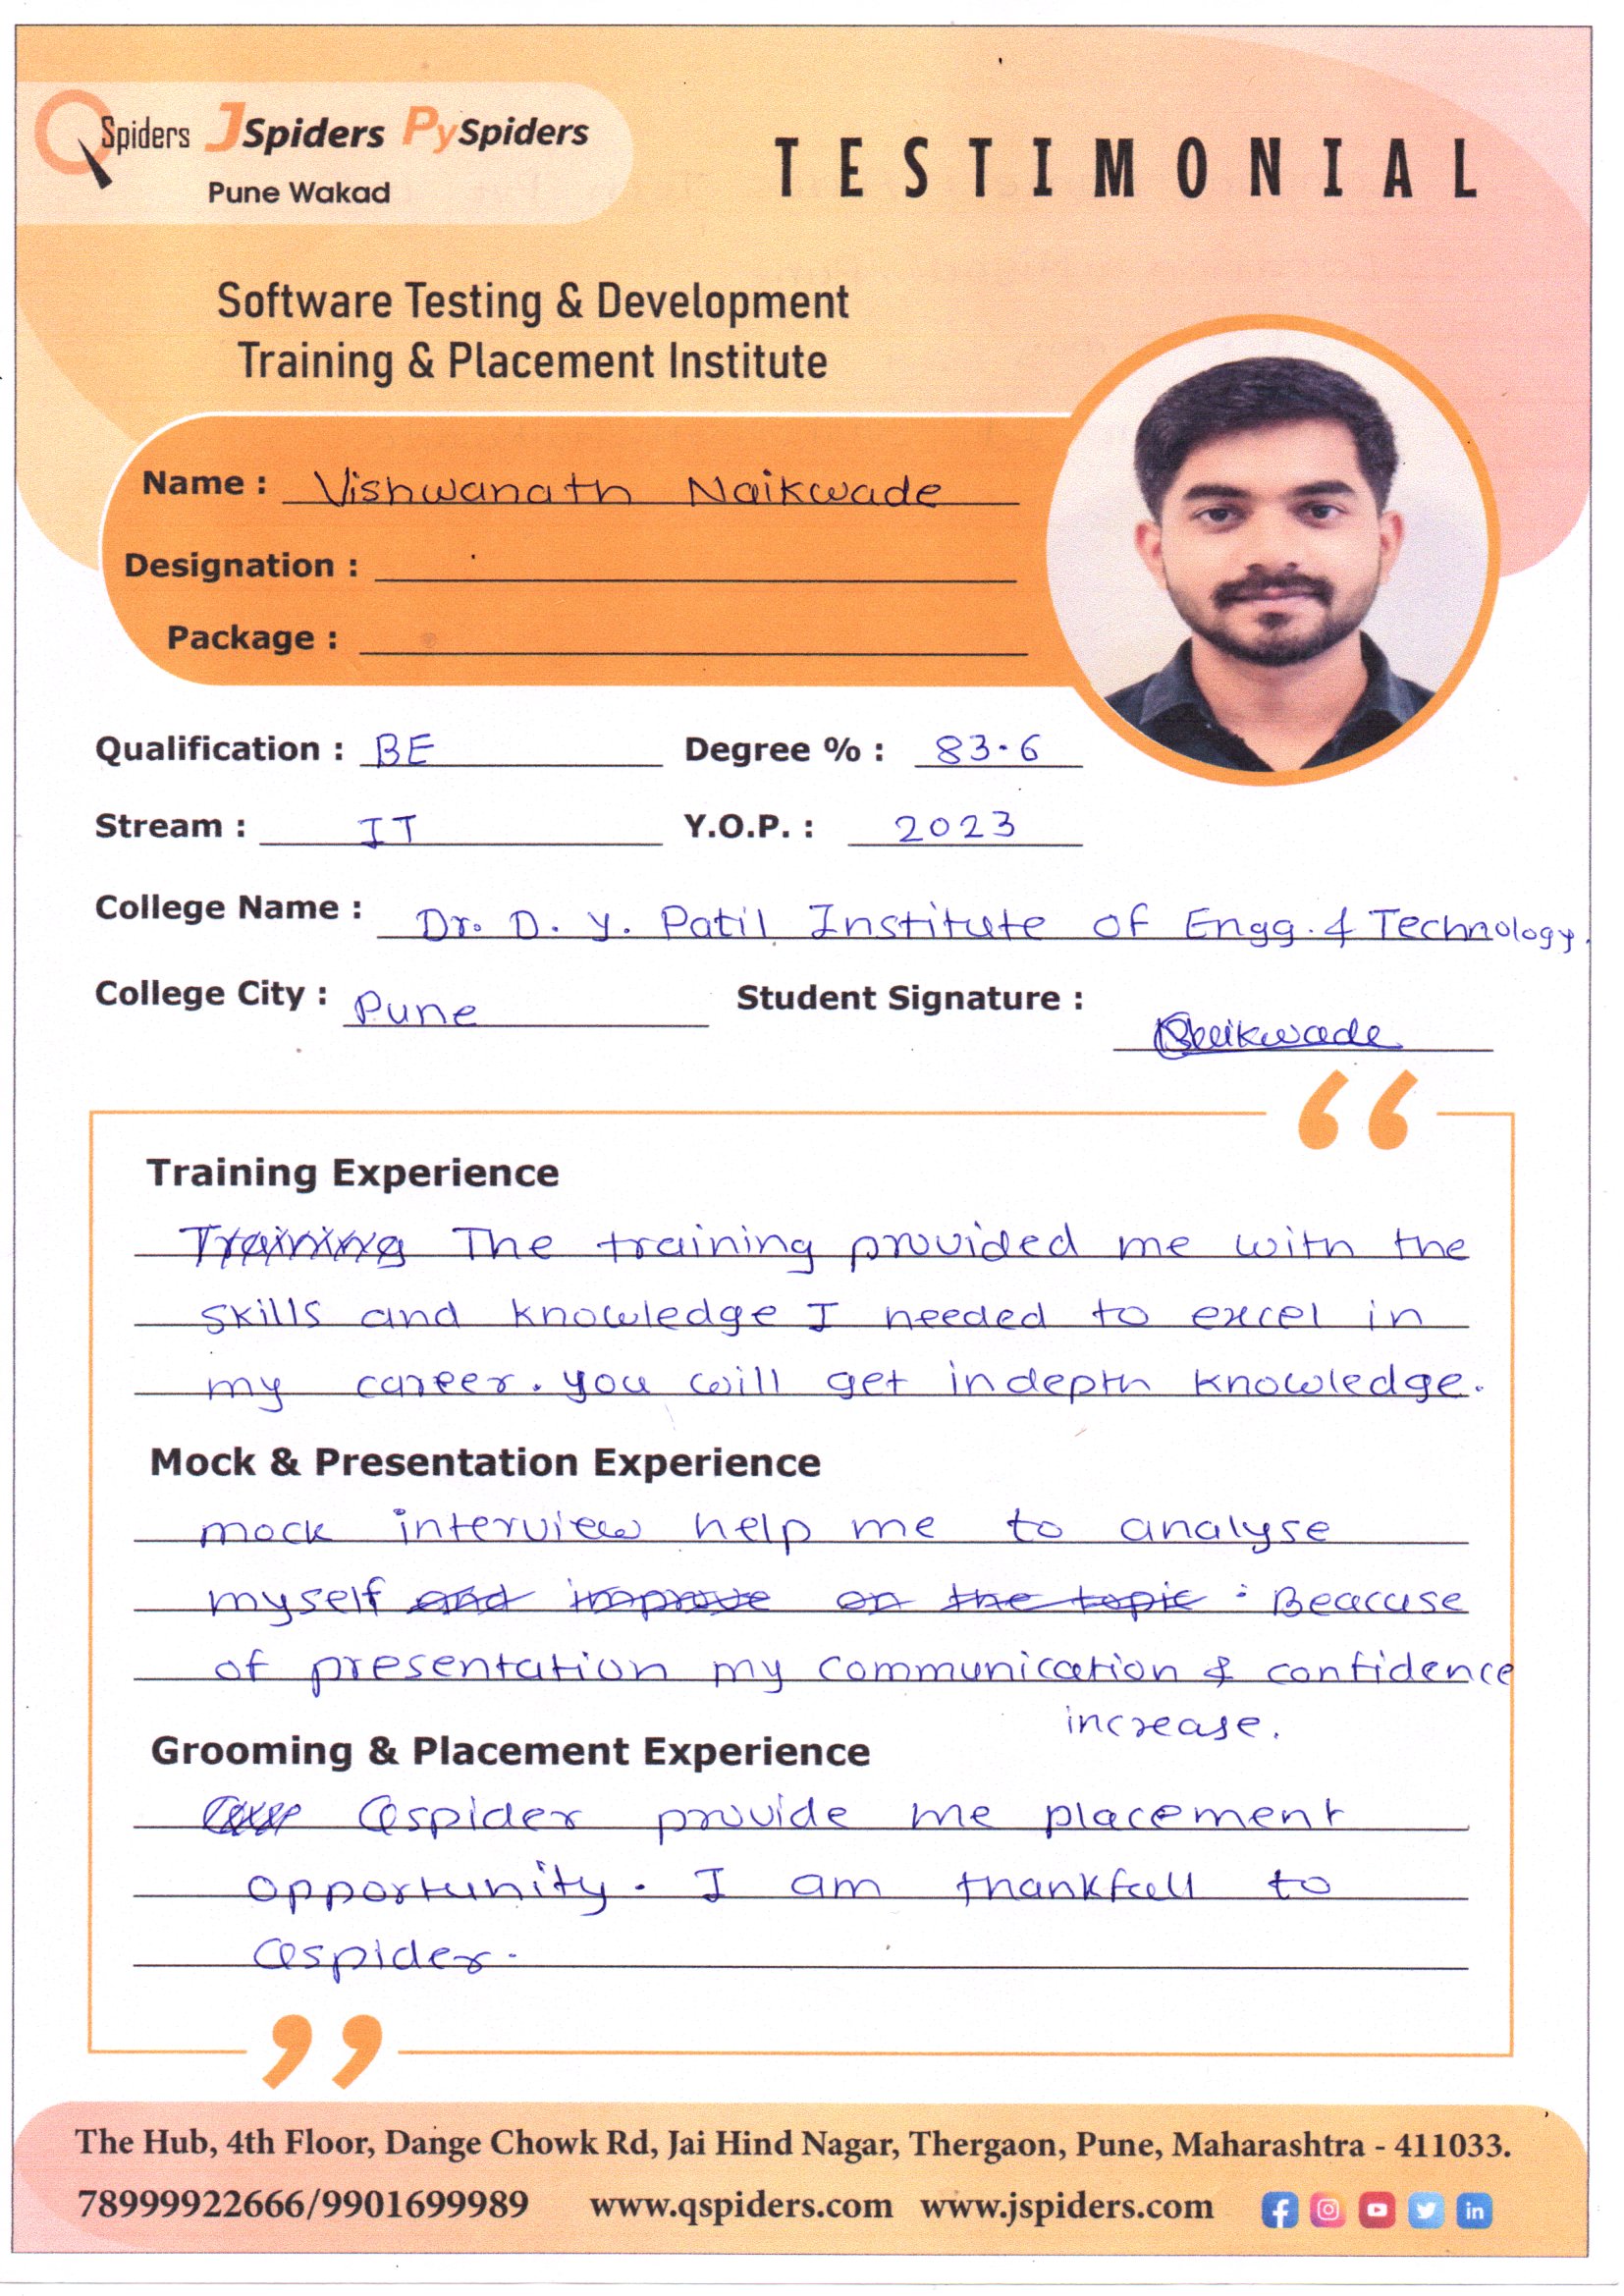 QSpiders JSpiders PySpiders
Pune Wakad
TESTIMONIAL
Software Testing & Development
Training & Placement Institute
Name : Vishwanath Naikwade
Designation :
Package :
Qualification : BE Degree % : 83.6
Stream : IT Y.O.P. : 2023
College Name : Dr. D. Y. Patil Institute of Engg. & Technology.
College City : Pune Student Signature :
Training Experience
Training The training provided me with the
skills and knowledge I needed to excel in
my career. you will get indepth knowledge.
Mock & Presentation Experience
mock interview help me to analyse
myself and improve on the topic : Beacuse
of presentation my communication & confidence
increase.
Grooming & Placement Experience
Qspider provide me placement
opportunity. I am thankfull to
Qspider.
The Hub, 4th Floor, Dange Chowk Rd, Jai Hind Nagar, Thergaon, Pune, Maharashtra - 411033.
78999922666/9901699989 www.qspiders.com www.jspiders.com